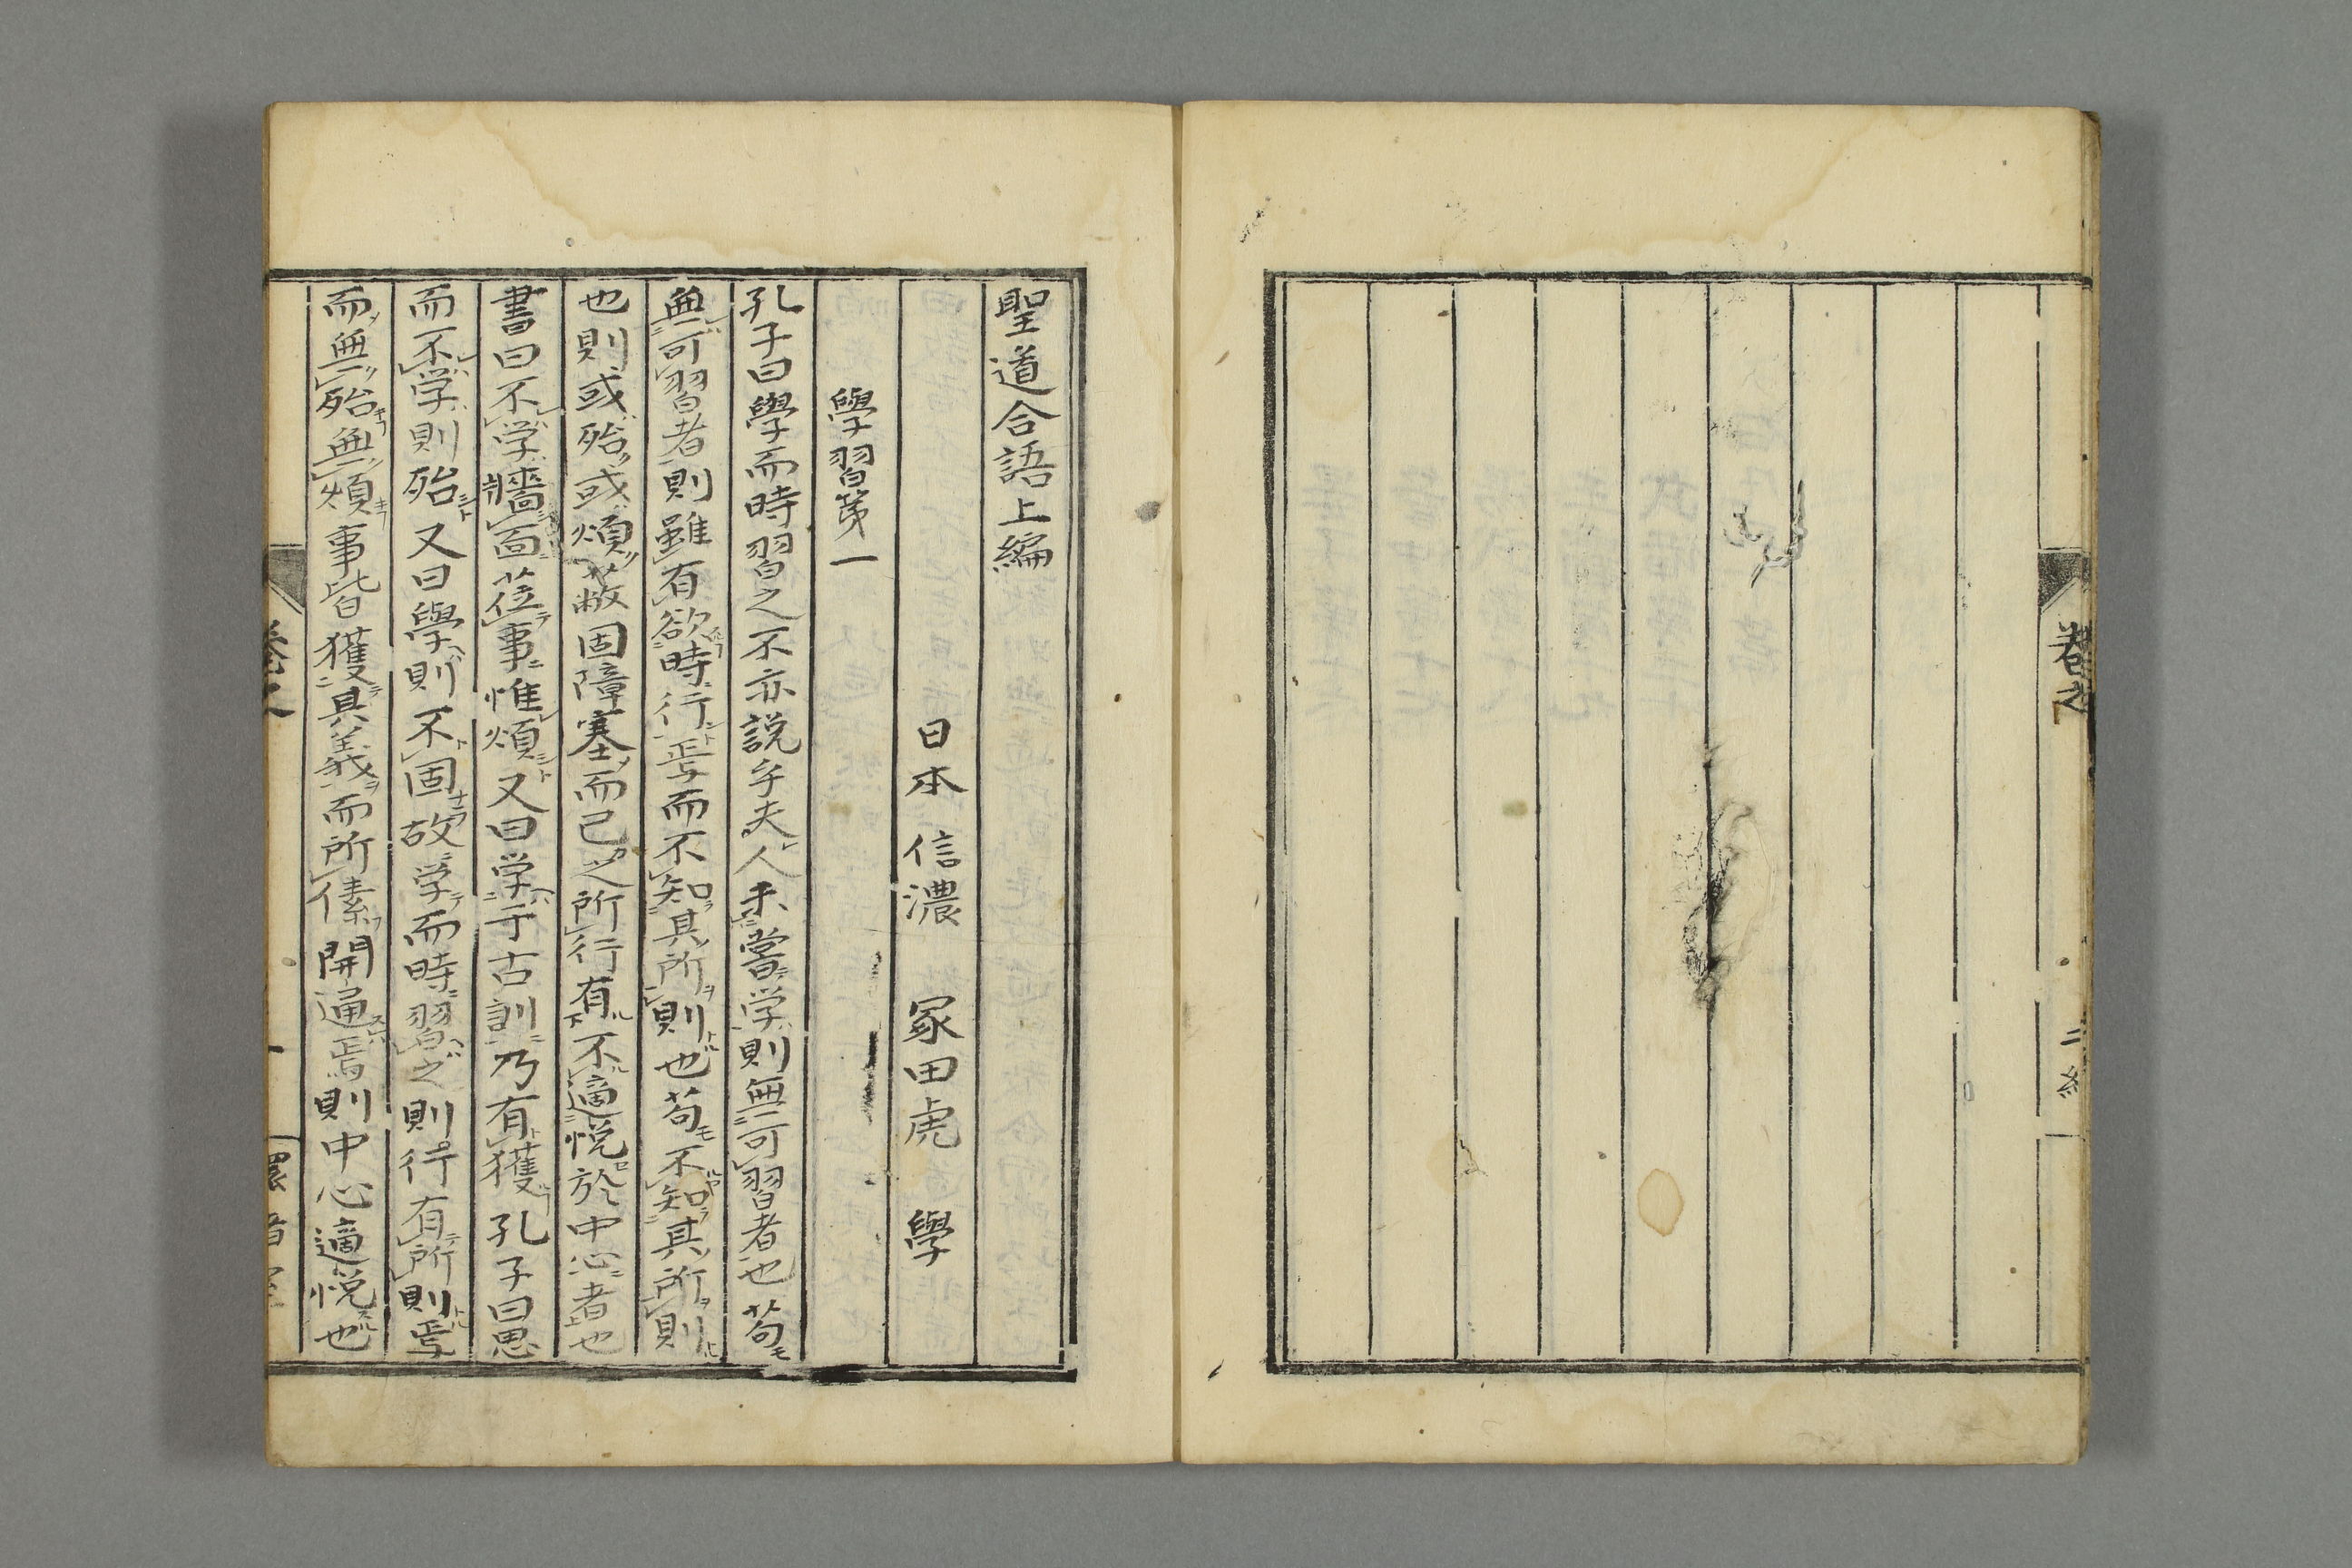 聖道合語上編
日本 信濃 冢田虎 學
學習第一
孔子曰學而時習之不亦説乎夫人未嘗学則無可習者也苟
無可習者則雖有欲時行焉而不知其所則也苟不知其所則
也則或殆或煩蔽固障塞而己之所行有不適悦於中心者也
書曰不学牆面莅事惟煩又曰学于古訓乃有獲孔子曰思
而不学則殆又曰學則不固故学而時習之則行有所則焉
而無殆無煩事皆獲其義而所傃開通焉則中心適悦也